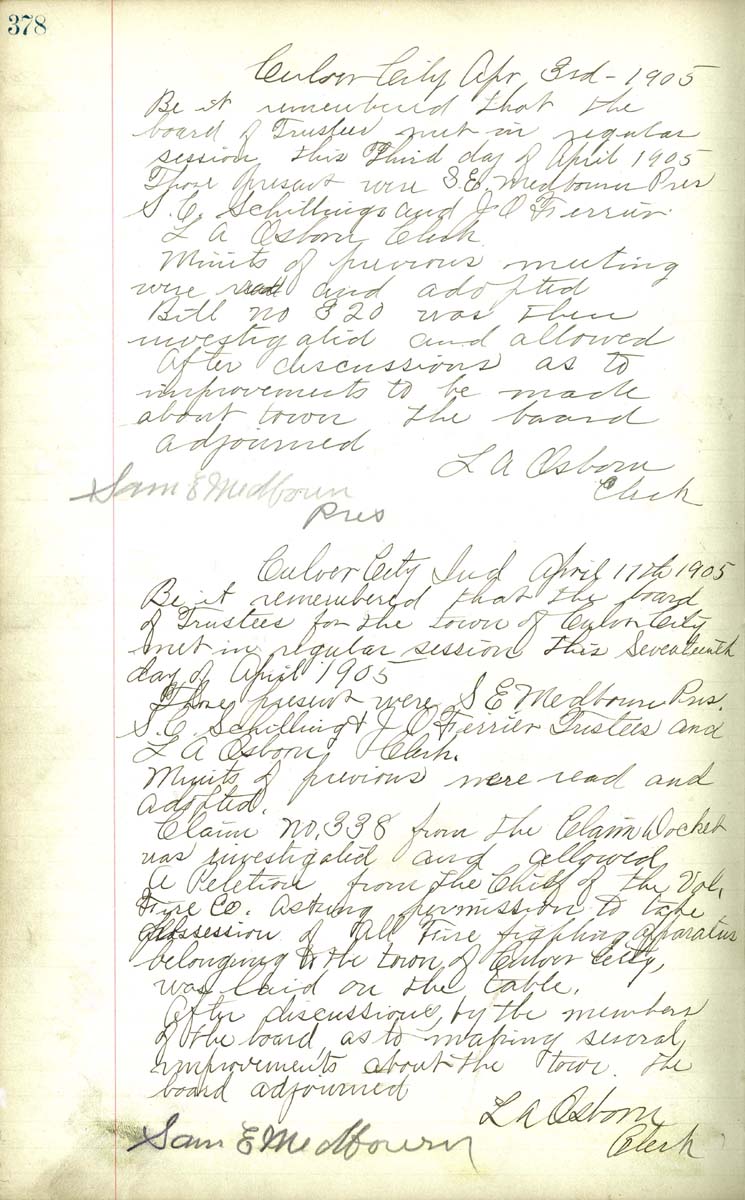 378
Culver City Apr 3rd - 1905
Be it remembered that the
board of Trustees met in regular
session this Third day of April 1905
Those present were S.E. Medbourn Pres
S.C. Schillings and J O Ferrier.
L A Osborn Clerk
Minits of previous meeting
were read and adopted
Bill no 320 was then
investigatid and allowed
After discussions as to
improvements to be made
about town the board
adjourned
L A Osborn
Clerk
Sam E Medbourn
Pres
Culver City Ind April 17th 1905
Be it remembered that the board
of Trustees for the town of Culver City
met in regular session this Seventeenth
day of April 1905
Those present were S E Medbourn Pres.
S.C. Schilling & J O Ferrier Trustees and
L A Osborn Clerk.
Minits of previous were read and
adopted.
Claim no. 338 from the Claim Docket
was investigatid and allowed
A Petetion from the Chief of the Vol.
Fire Co. asking permission to take
possession of all Fire fighting apparatus
belonging to the town of Culver City,
was laid on the table.
After discussions, by the members
of the board as to making several
improvements about the town the
board adjourned
L A Osborn
Clerk
Sam E Medbourn